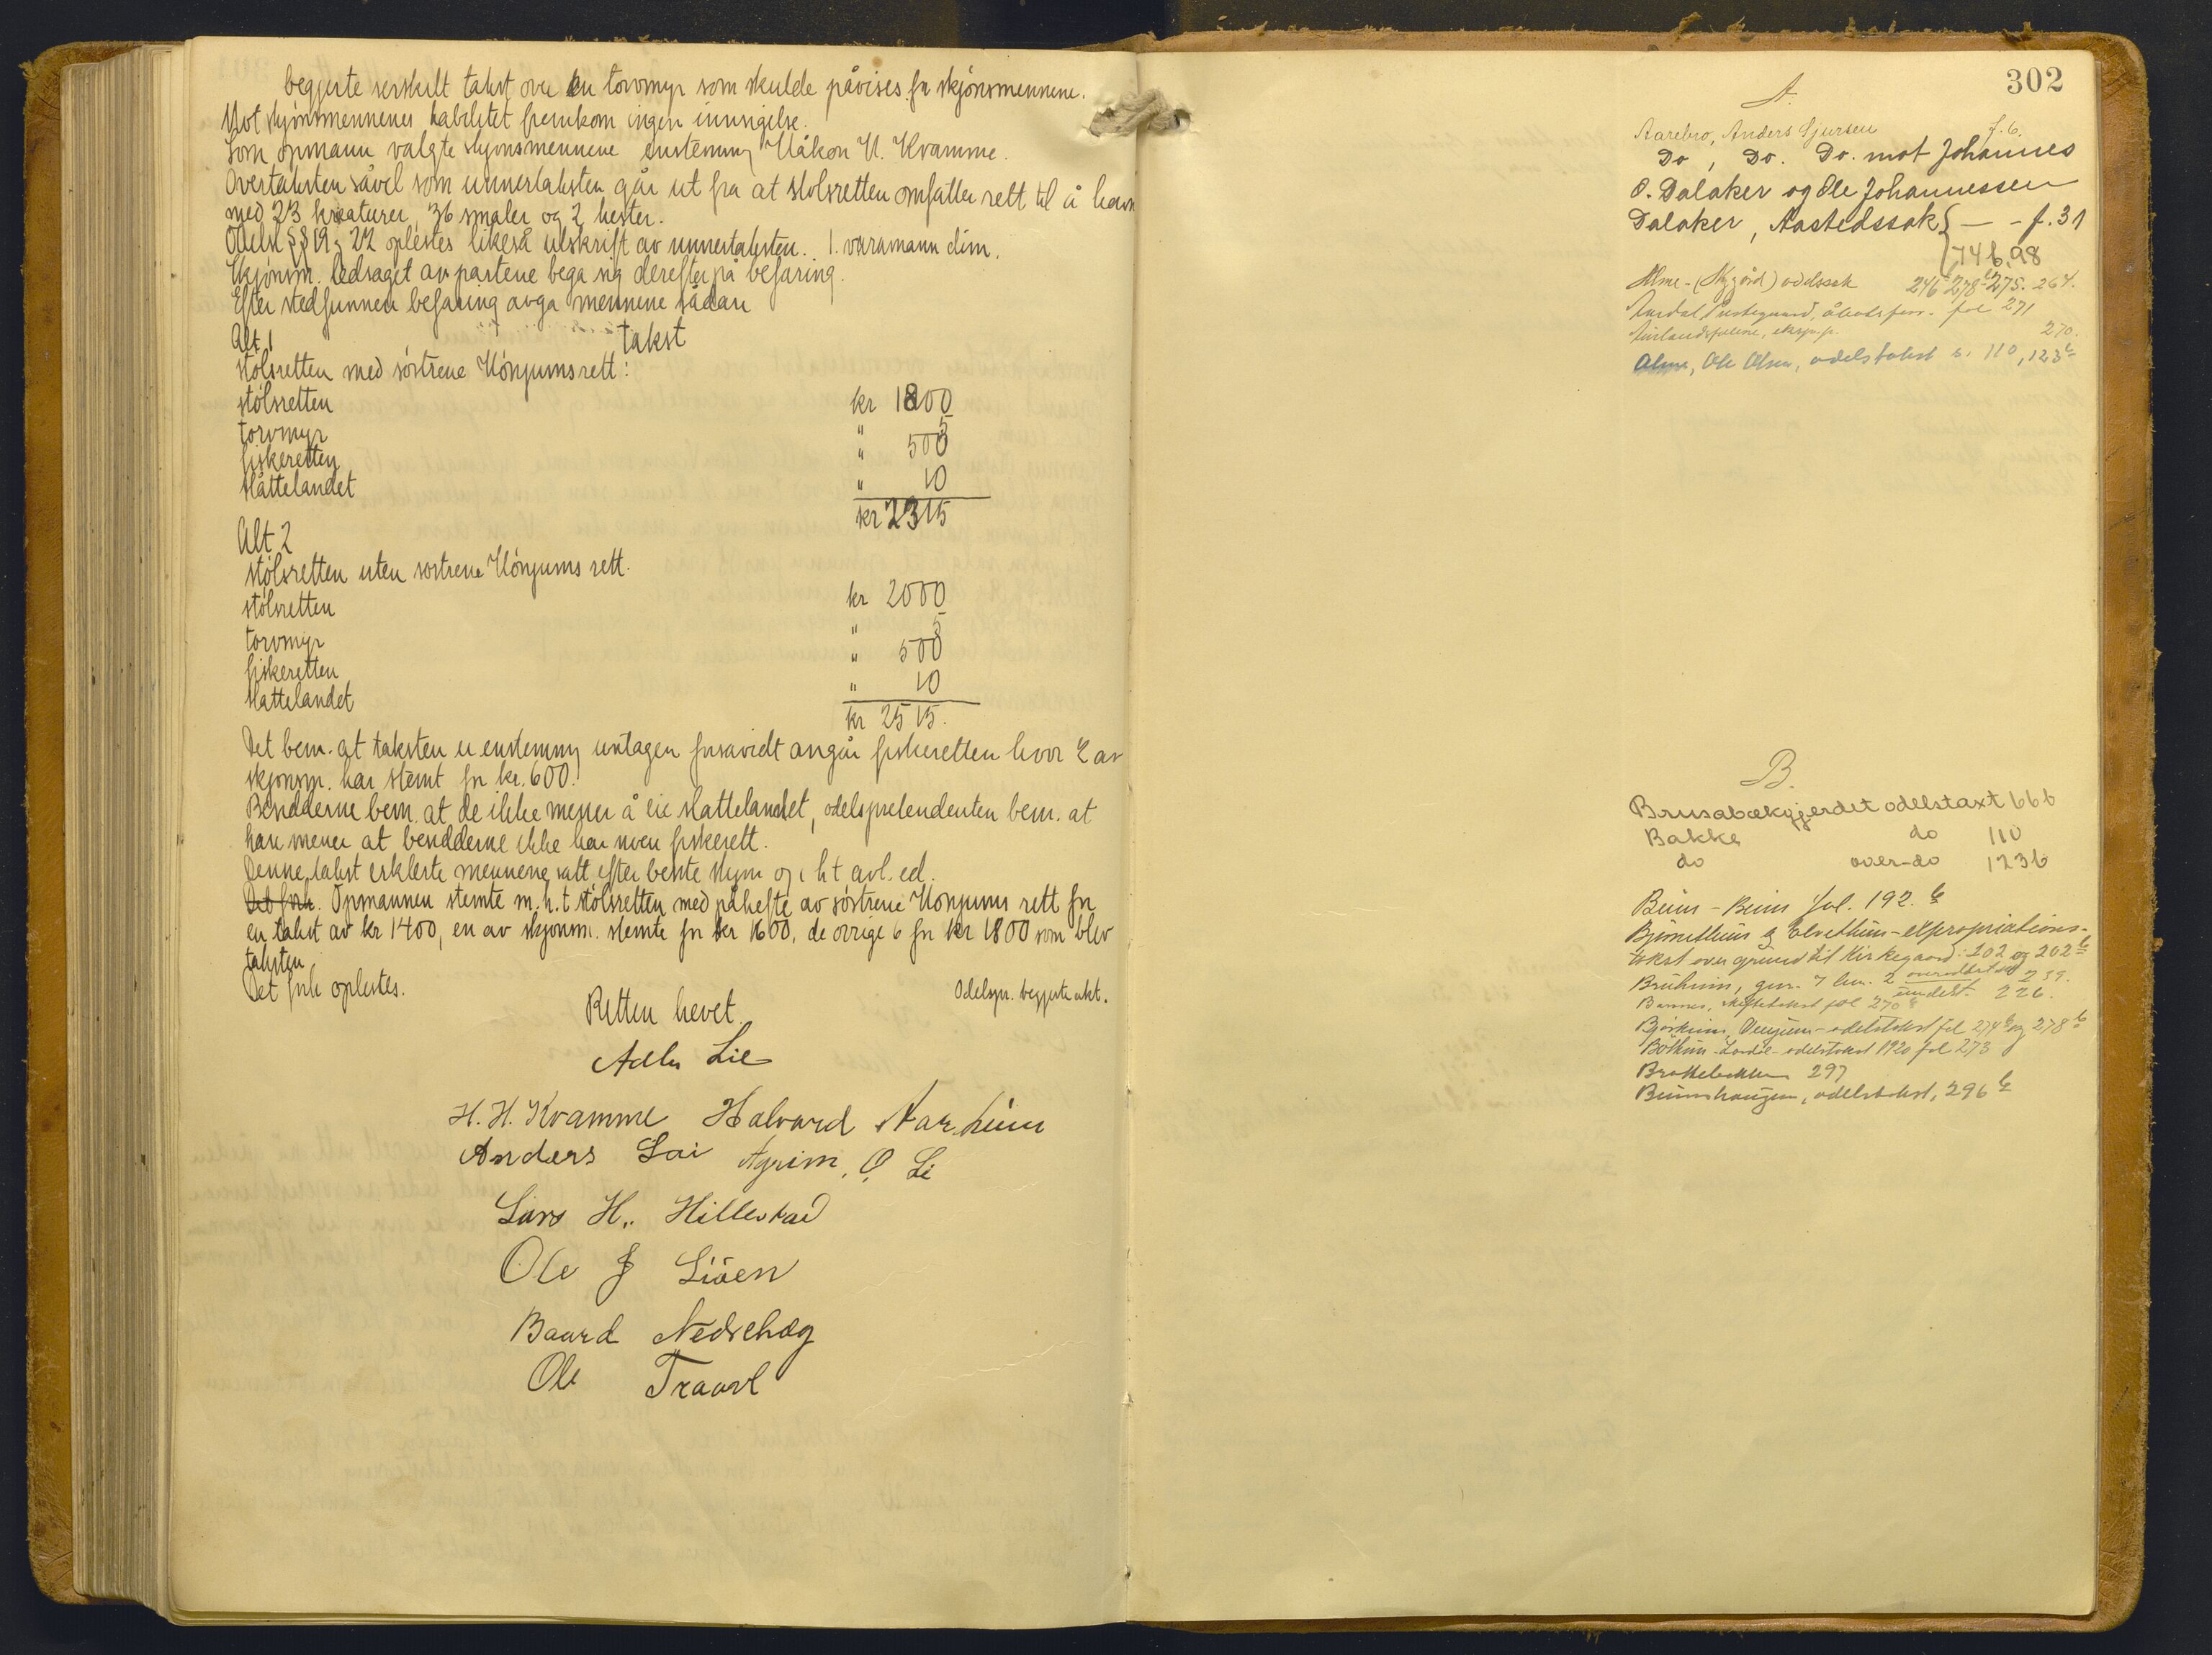 begjerte serskilt takst over en torvmyr som skulde påvises for skjønsmennene.
Mot skjønsmennenes habilitet fremkom ingen innsigelse.
Som opmann valgte skjønsmennene enstemmig Håkon H. Kvamme.
Overtaksten såvel som unnertaksten går ut fra at stølsretten omfatter rett til å havne
med 23 kreaturer, 36 smaler og 2 hester.
Odelsl §§ 19 og 22 oplestes likeså utskrift av unnertaksten. 1. varamann dim.
Skjønsm. ledsaget av partene bega sig derefter på befaring.
Efter stedfunnen befaring avga mennene sådan
takst
Alt. 1
stølsretten med søstrene Hønjums rett:
stølsretten kr 1800
torvmyr " 5
fiskeretten " 500
slåttelandet " 10
kr 2315
Alt 2
stølsretten uten søstrene Hønjums rett.
stølsretten kr 2000
torvmyr " 5
fiskeretten " 500
slåttelandet " 10
kr 2515.
Det bem. at taksten er enstemmig untagen forsåvidt angår fiskeretten hvor 2 av
skjønsm. har stemt for kr. 600.
Bendderne bem. at de ikke mener å eie slåttelandet, odelspretendenten bem. at
han mener at bendderne ikke har noen fiskerett.
Denne takst erklærte mennene satt efter beste skjønn og i h t avl. ed.
Det fork. Opmannen stemte m.h.t stølsretten med påhefte av søstrene Hønjums rett for
en takst av kr 1400, en av skjønsm. stemte for kr 1600, de øvrige 6 for kr 1800 som blev
taksten
Det førte oplestes. Odelspr. begjerte akt.
Retten hevet.
Adler Lie
H. H. Kvamme Halvard Aarheim
Anders Loi Agrim. O. Li
Lars H. Hillestad
Ole J Liøen
Baard Nedrehag
Ole Traavl
302
A.
Aarebro, Anders Sjursen f. 6.
Do, Do. Do. mot Johannes
O. Dalaker og Ole Johannessen
Dalaker, Aastedssak — - f. 31
74 b, 98
Alme - (Nygård) odelssak 246 b 278 b 275. 264.
Aurdal, åbotsforr. fol 271
270.
Alme, Ole Olsen, odelstakst s. 110, 123 b
B.
Brusabækgjerdet odelstaxt 66 b
Bakke do 110
do over-do 123 b
Beim - Beim fol. 192. b
Bjørnethun & Elvethun - expropriations-
takst over grund til Kirkegaard: 202 og 202 b
Bruheim, gnr. 7 bnr. 2 overodelstakst 239.
undert. 226.
skiftetakst fol 270 b
Bjørkum, odelstakst fol 274 b og 278 b
Bøthun odelstakst 1920 fol 273
Brattebakken 297
Beimshaugen, odelstakst, 296 b